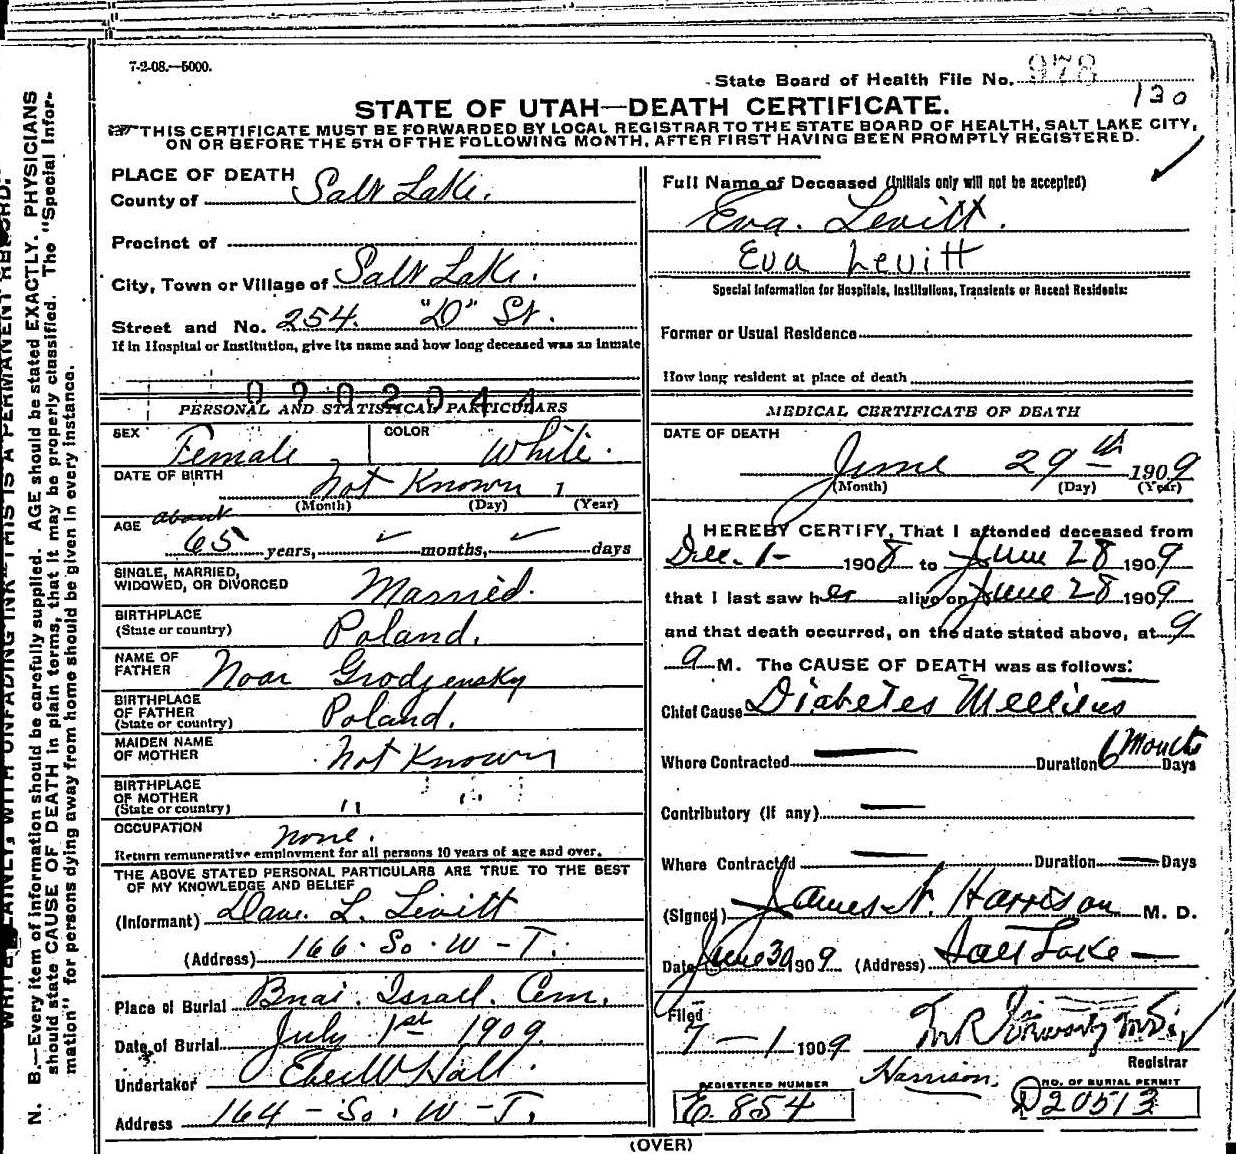 7-2-08.—5000.
State Board of Health File No. 978
130
STATE OF UTAH—DEATH CERTIFICATE.
THIS CERTIFICATE MUST BE FORWARDED BY LOCAL REGISTRAR TO THE STATE BOARD OF HEALTH, SALT LAKE CITY,
ON OR BEFORE THE 5TH OF THE FOLLOWING MONTH, AFTER FIRST HAVING BEEN PROMPTLY REGISTERED.
PLACE OF DEATH
County of Salt Lake.
Precinct of
City, Town or Village of Salt Lake.
Street and No. 254. "D" St.
If in Hospital or Institution, give its name and how long deceased was an inmate
0902044
PERSONAL AND STATISTICAL PARTICULARS
SEX Female COLOR White.
DATE OF BIRTH Not Known 1
(Month) (Day) (Year)
AGE about 65 years, months, days
SINGLE, MARRIED,
WIDOWED, OR DIVORCED Married.
BIRTHPLACE
(State or country) Poland.
NAME OF
FATHER Noar Grodzensky
BIRTHPLACE
OF FATHER
(State or country) Poland.
MAIDEN NAME
OF MOTHER Not Known
BIRTHPLACE
OF MOTHER
(State or country) " "
OCCUPATION none.
Return remunerative employment for all persons 10 years of age and over.
THE ABOVE STATED PERSONAL PARTICULARS ARE TRUE TO THE BEST
OF MY KNOWLEDGE AND BELIEF
(Informant) Dave L. Levitt
(Address) 166. So. W-T.
Place of Burial Bnai. Israel. Cem.
Date of Burial July 1st 1909.
Undertaker Eber W Hall.
Address 164-So. W-T.
Full Name of Deceased (Initials only will not be accepted)
Eva. Levitt.
Eva Levitt
Special Information for Hospitals, Institutions, Transients or Recent Residents:
Former or Usual Residence
How long resident at place of death
MEDICAL CERTIFICATE OF DEATH
DATE OF DEATH
June 29th 1909
(Month) (Day) (Year)
I HEREBY CERTIFY, That I attended deceased from
Dec. 1- 1908 to June 28 1909
that I last saw her alive on June 28 1909
and that death occurred, on the date stated above, at 9
a M. The CAUSE OF DEATH was as follows:
Chief Cause Diabetes Mellitus
Where Contracted Duration 6 Months Days
Contributory (if any)
Where Contracted Duration Days
(Signed) James N. Harrison M. D.
Date June 30 1909 (Address) Salt Lake
Filed
7-1 1909
Registrar
Harrison.
REGISTERED NUMBER
E 854
NO. OF BURIAL PERMIT
D20513
(OVER)
N. B.—Every item of information should be carefully supplied. AGE should be stated EXACTLY. PHYSICIANS
should state CAUSE OF DEATH in plain terms, that it may be properly classified. The "Special Infor-
mation" for persons dying away from home should be given in every instance.
WRITE PLAINLY, WITH UNFADING INK—THIS IS A PERMANENT RECORD.